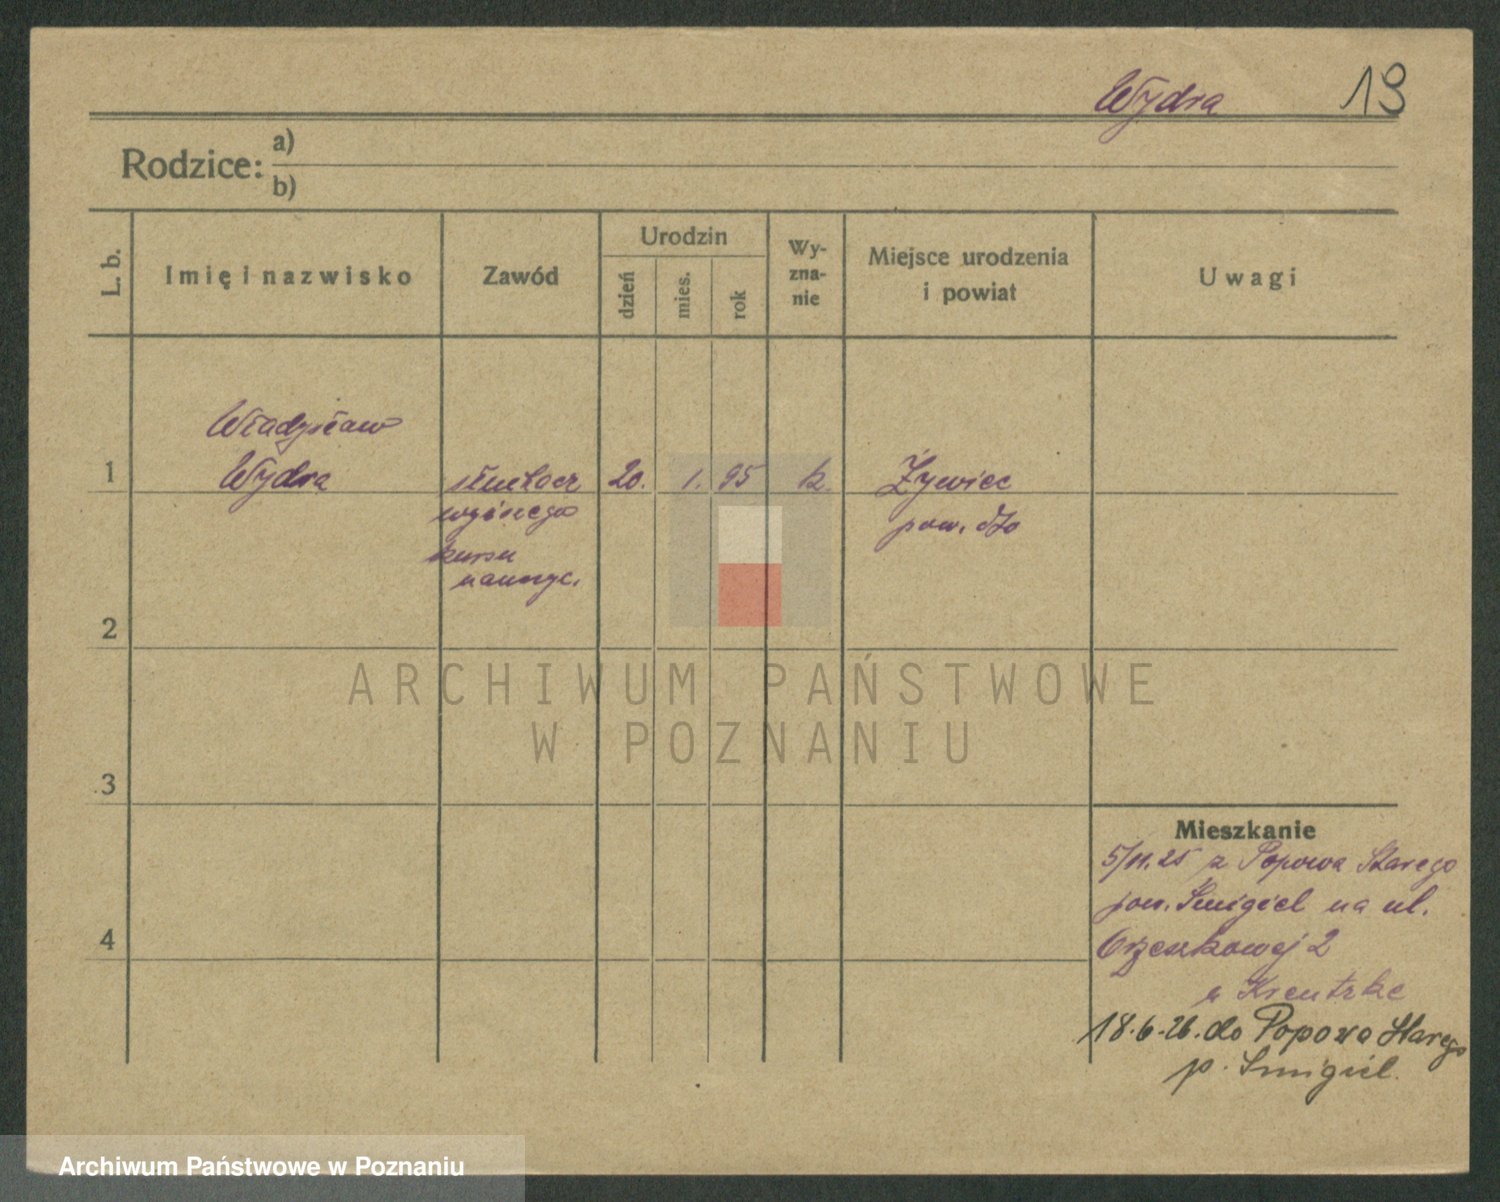 Wydra 19
Rodzice: a)
b)
L. b.
Imię i nazwisko
Zawód
Urodzin
dzień
mies.
rok
Wy-
zna-
nie
Miejsce urodzenia
i powiat
Uwagi
Władysław
1 Wydra słuchacz 20. 1. 95 k. Żywiec
wyższego pow. dto
kursu
naucz.
2
ARCHIWUM PAŃSTWOWE
W POZNANIU
3
4
Mieszkanie
5/11.25 z Popowa Starego
pow. Śmigiel na ul.
Orzeszkowej 2
18.6.26. do Popowa Starego
p. Śmigiel.
Archiwum Państwowe w Poznaniu